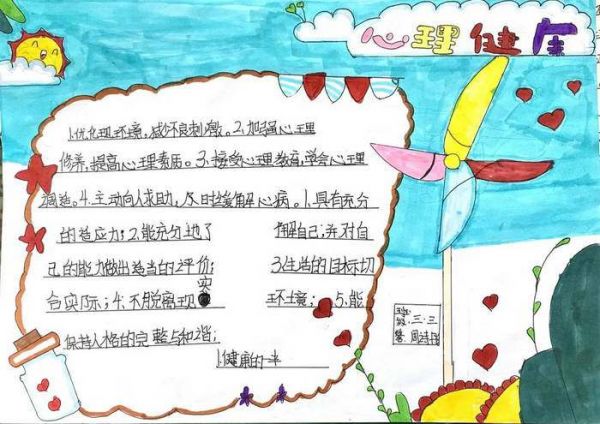 心理健康
1.优化现环境,减少不良刺激。2.加强心理
修养,提高心理素质。3、接受心理教育,学会心理
调适。4.主动向人求助,及时缓解心病。1.具有充分
的适应力;2.能充分地了 解自己,并对自
己的能力做出适当的评价; 3.生活的目标切
合实际;4、不脱离现实 环境;5.能
保持人格的完整与和谐;
1.健康的一
班级:三.三